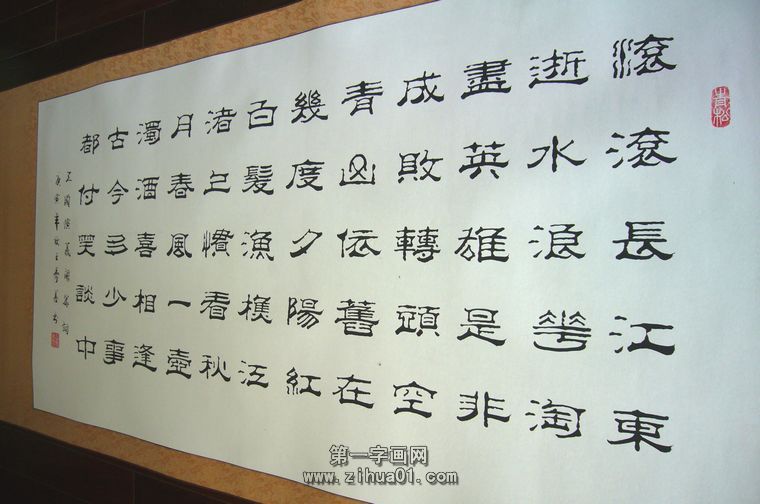 青松
滚滚長江東
逝水浪花淘
盡英雄是非
成敗轉頭空
青山依舊在
幾度夕陽紅
白髮漁樵江
渚上慣看秋
月春風一壺
濁酒喜相逢
古今多少事
都付笑談中
三國演義開篇詞
庚寅年秋
第一字画网
www.zihua01.com